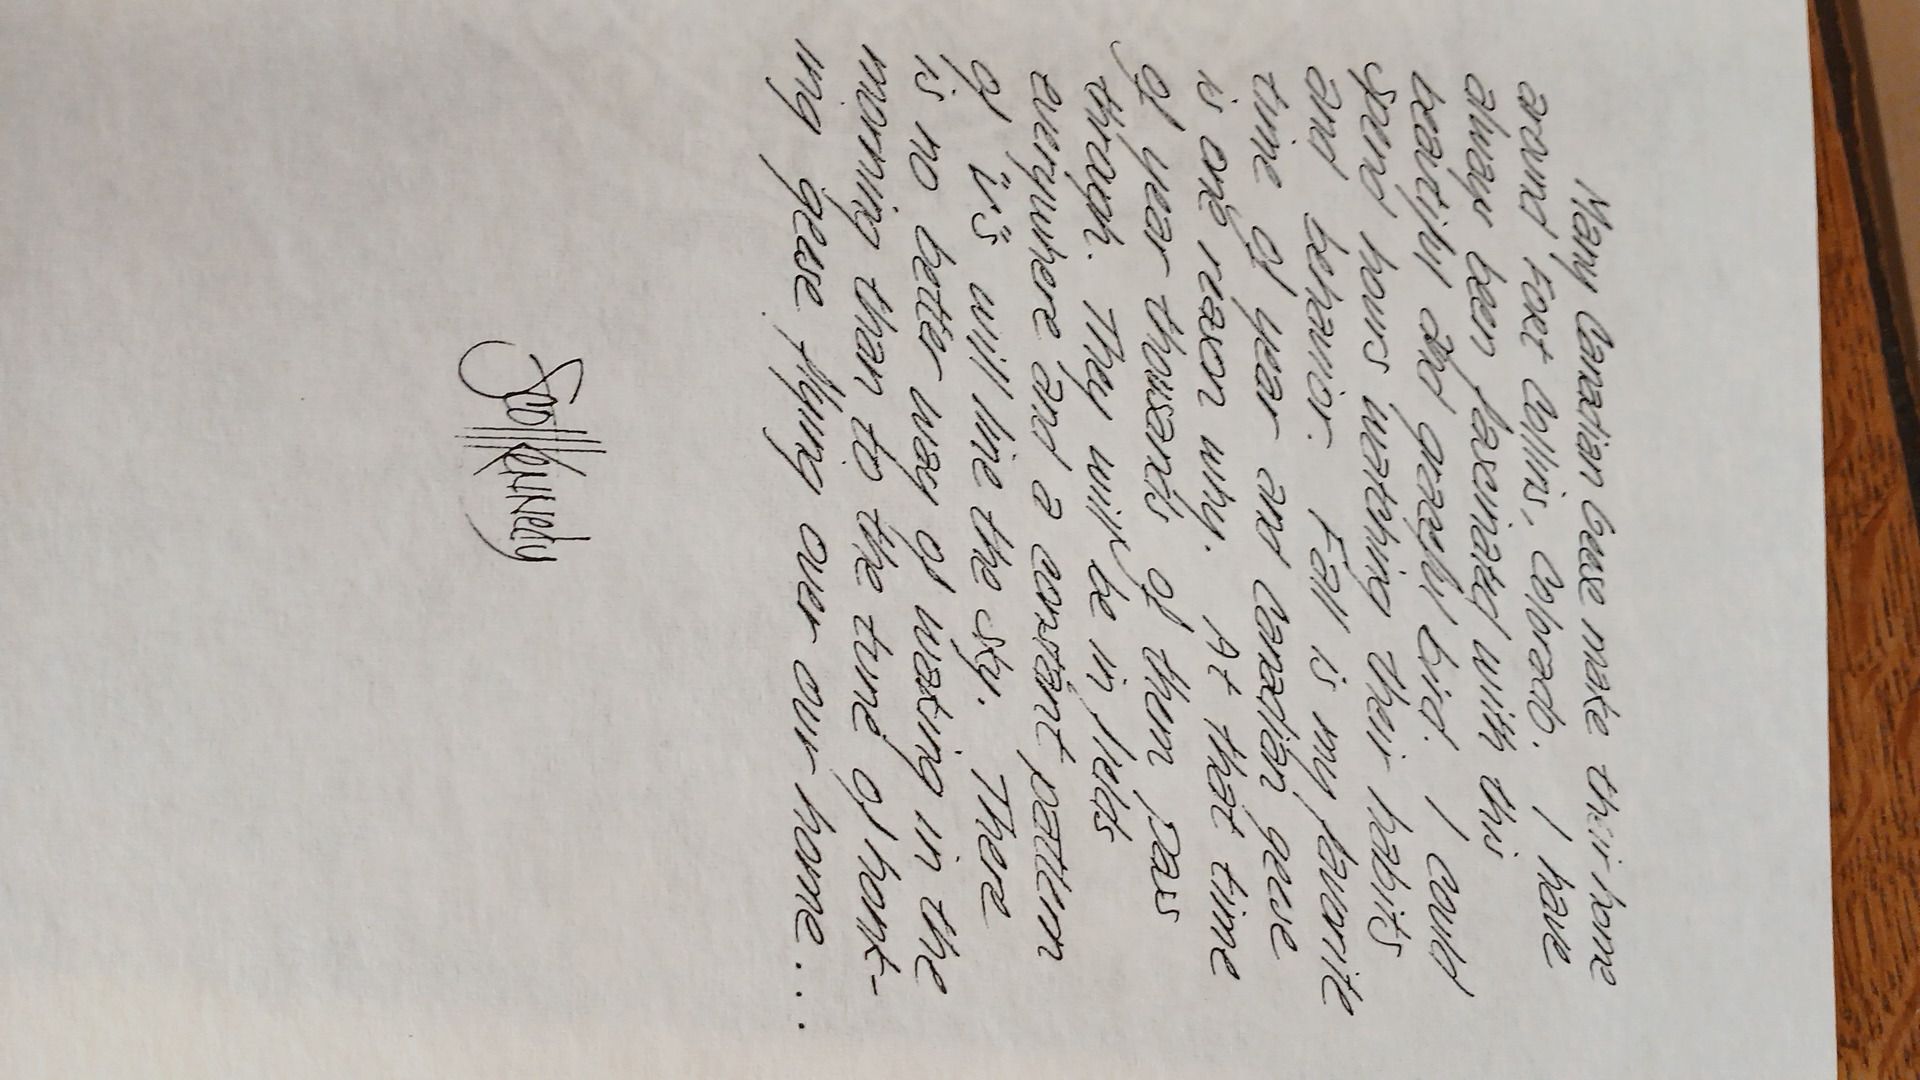 Many Canadian Geese make their home
around Fort Collins, Colorado. I have
always been fascinated with this
beautiful and graceful bird. I could
spend hours watching their habits
and behavior. Fall is my favorite
time of year and Canadian geese
is one reason why. At that time
of year thousands of them pass
through. They will be in fields
everywhere and a constant pattern
of "v's" will line the sky. There
is no better way of waking in the
morning than to the tune of honk-
ing geese flying over our home...
Kennedy